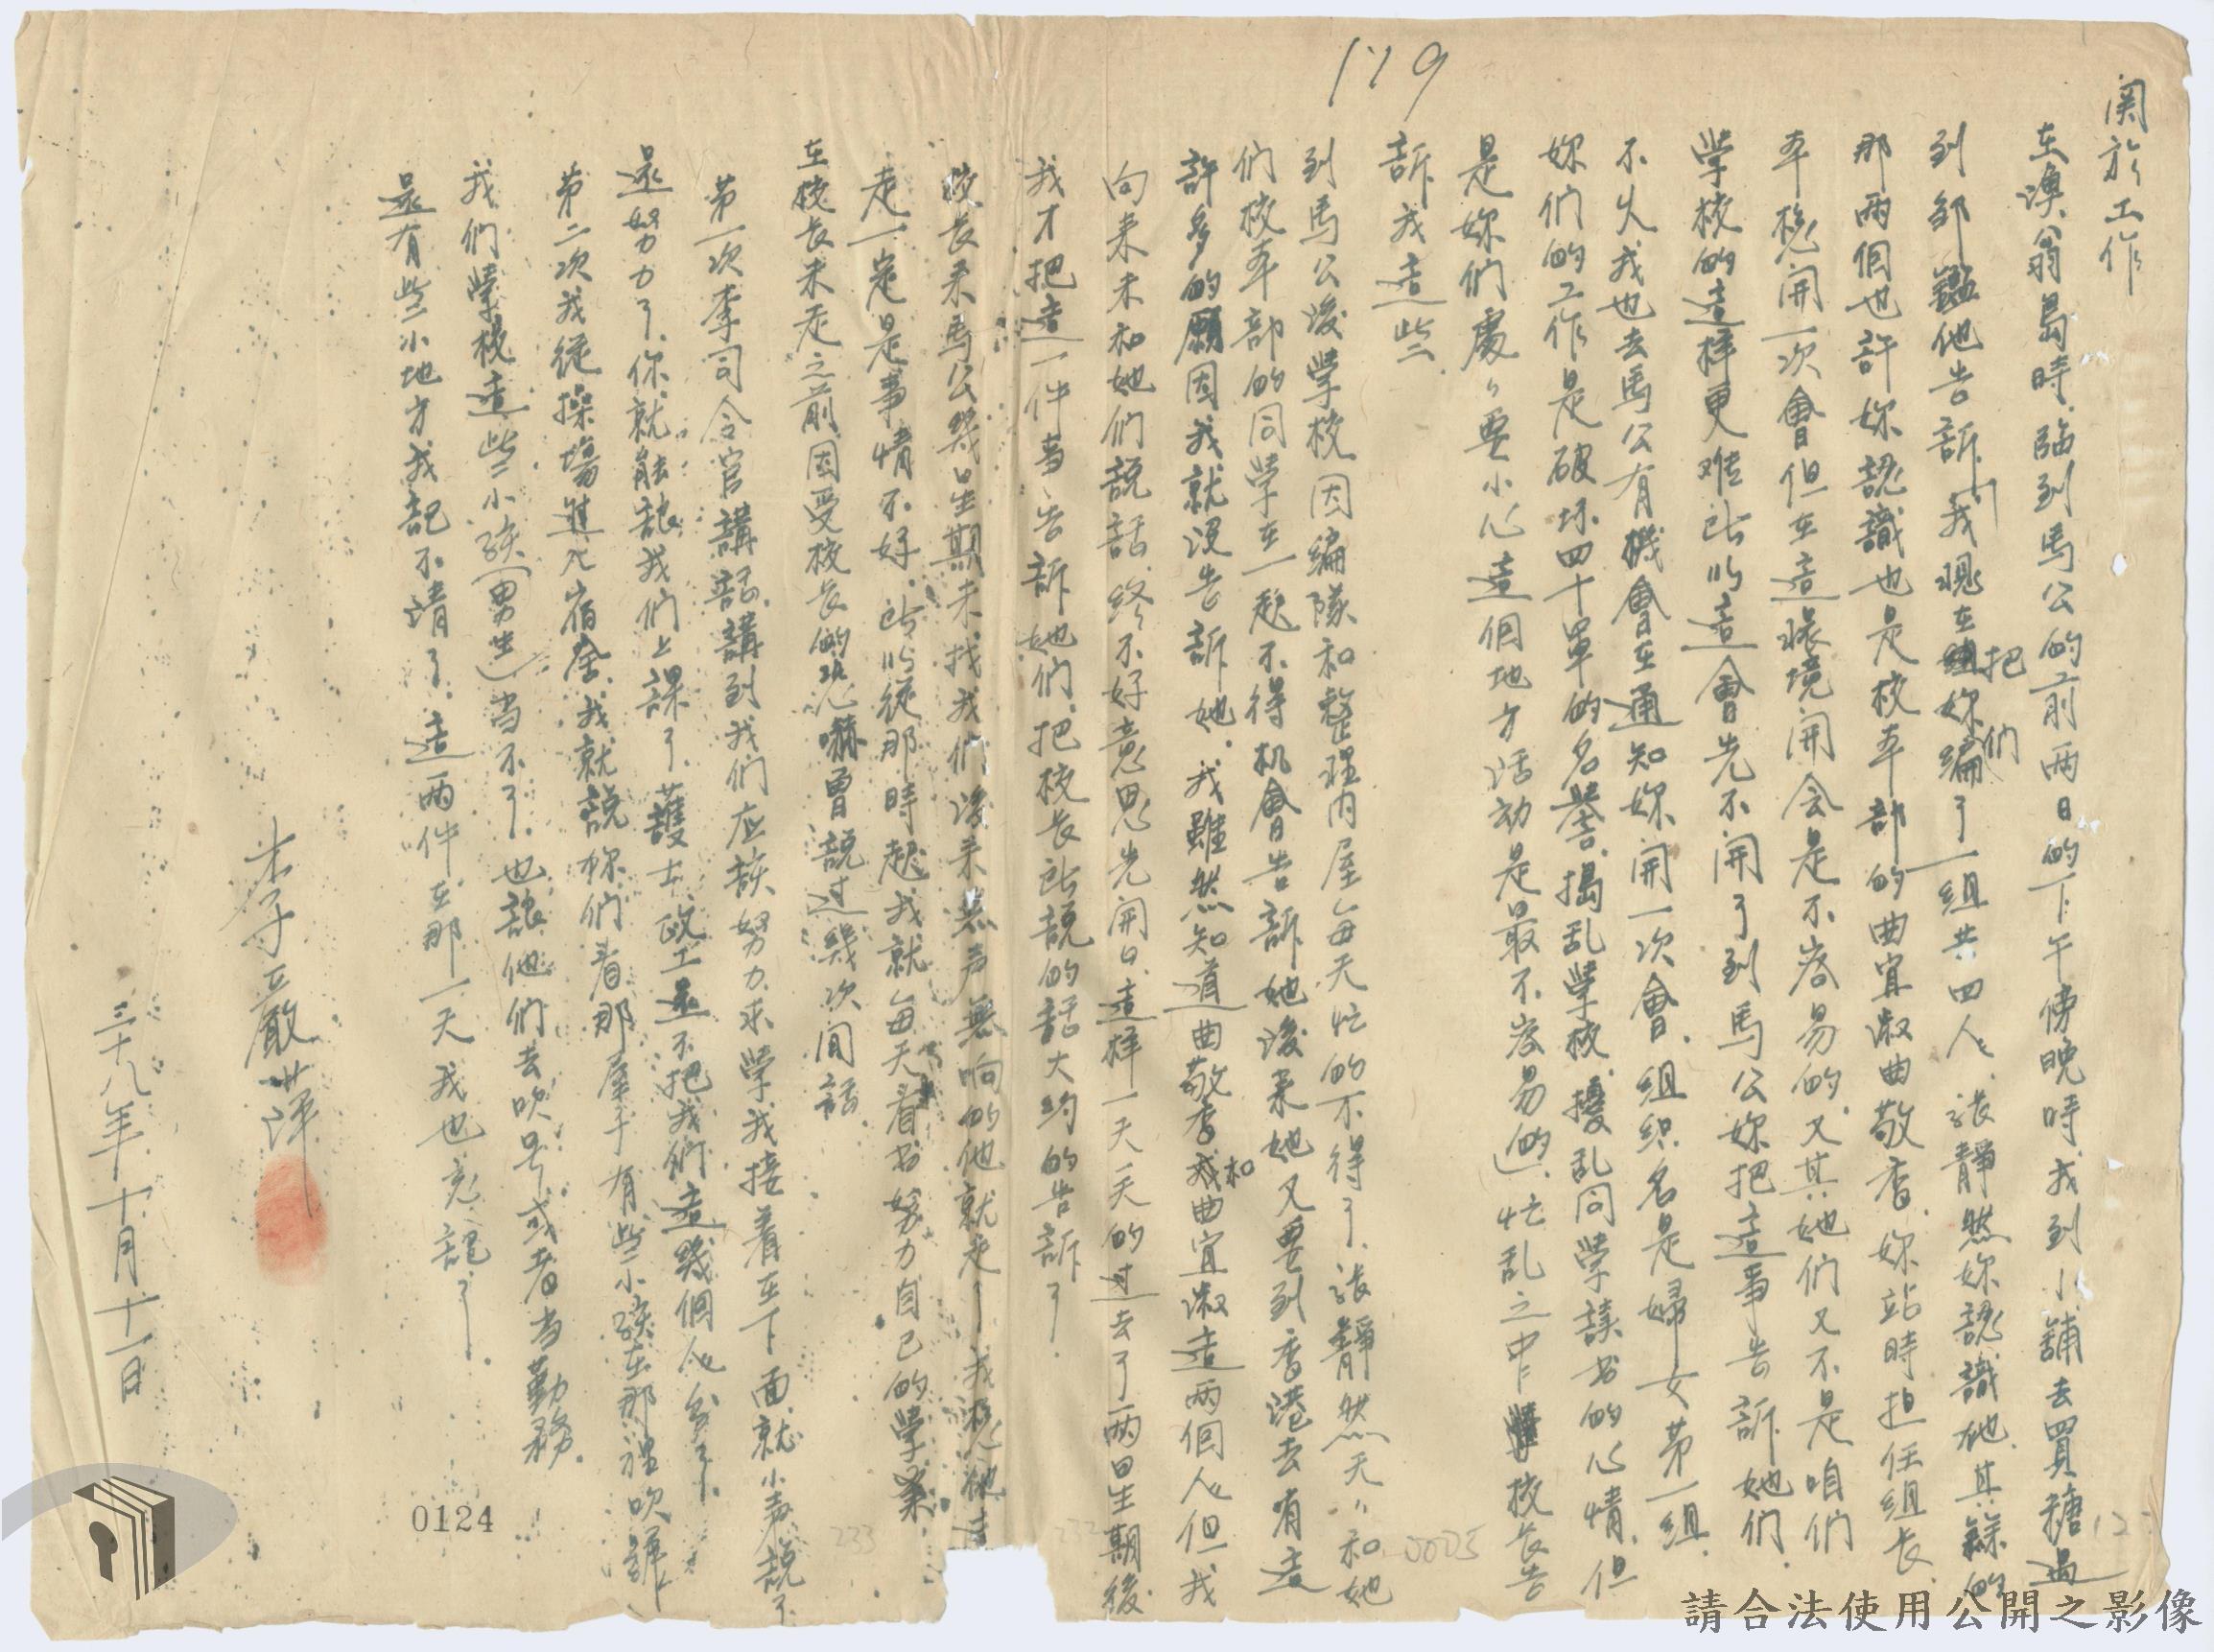 179
関於工作
在漁翁島時.臨到馬公的前兩日的下午傍晚時.我到小舖去買糖遇
到鄒鑑他告訴.「我現在把妳们編了一組共四人、張靜然妳認識他.其餘的
那兩個也許妳認識也是校本部的曲宜淑曲敬香.妳站時担任組長.
本想開一次會但在這環境開会是不容易的.又其她们又不是咱们
學校的這樣更难所以這會先不開了到馬公妳把這事告訴她们.
不久我也去馬公有機會在通知妳開一次會.組织名是婦女第一組.
妳们的工作是破坏四十軍的名譽.搗乱學校.擾乱同學讀书的心情.但
是妳们處々要小心這個地方活动是最不容易的」.忙乱之中校長告
訴我這些.
到馬公後學校因編隊和整理内屋每天忙的不得了.張靜然天々和她
们校本部的同學在一起不得机會告訴她後来她又要到香港去有這
許多的願因我就没告訴她.我雖然知道曲敬香和曲宜淑這兩個人但我
向来未和她们說話.终不好意思先開口.這樣一天天的过去了兩星期後
我才把這一件事告訴她们.把校长所說的話大约的告訴了.
校長来馬公幾星期未找我们後来無声無响的他就走了我想他這
走一定是事情不好.所以從那時起我就每天看书努力自己的學業
在校长未走之前因受校长的恐嚇曾說过幾次闲話.
第一次李司令官講話.講到我们应該努力求學我接着在下面就小声說了
還努力了.你就能讓我们上課了.護士.政工還不把我们這幾個人分了.
第二次我從操場進入宿舍.我就說妳们看那屋子有些小孩在那裡吹譁
我们學校這些小孩(男生)当不了.也讓他们去吹号或者当勤務.
還有些小地方我記不清了.這兩件在那一天我也忘記了.
李嚴萍
三十八年十月十一日
0124
0005
232
233
12
請合法使用公開之影像